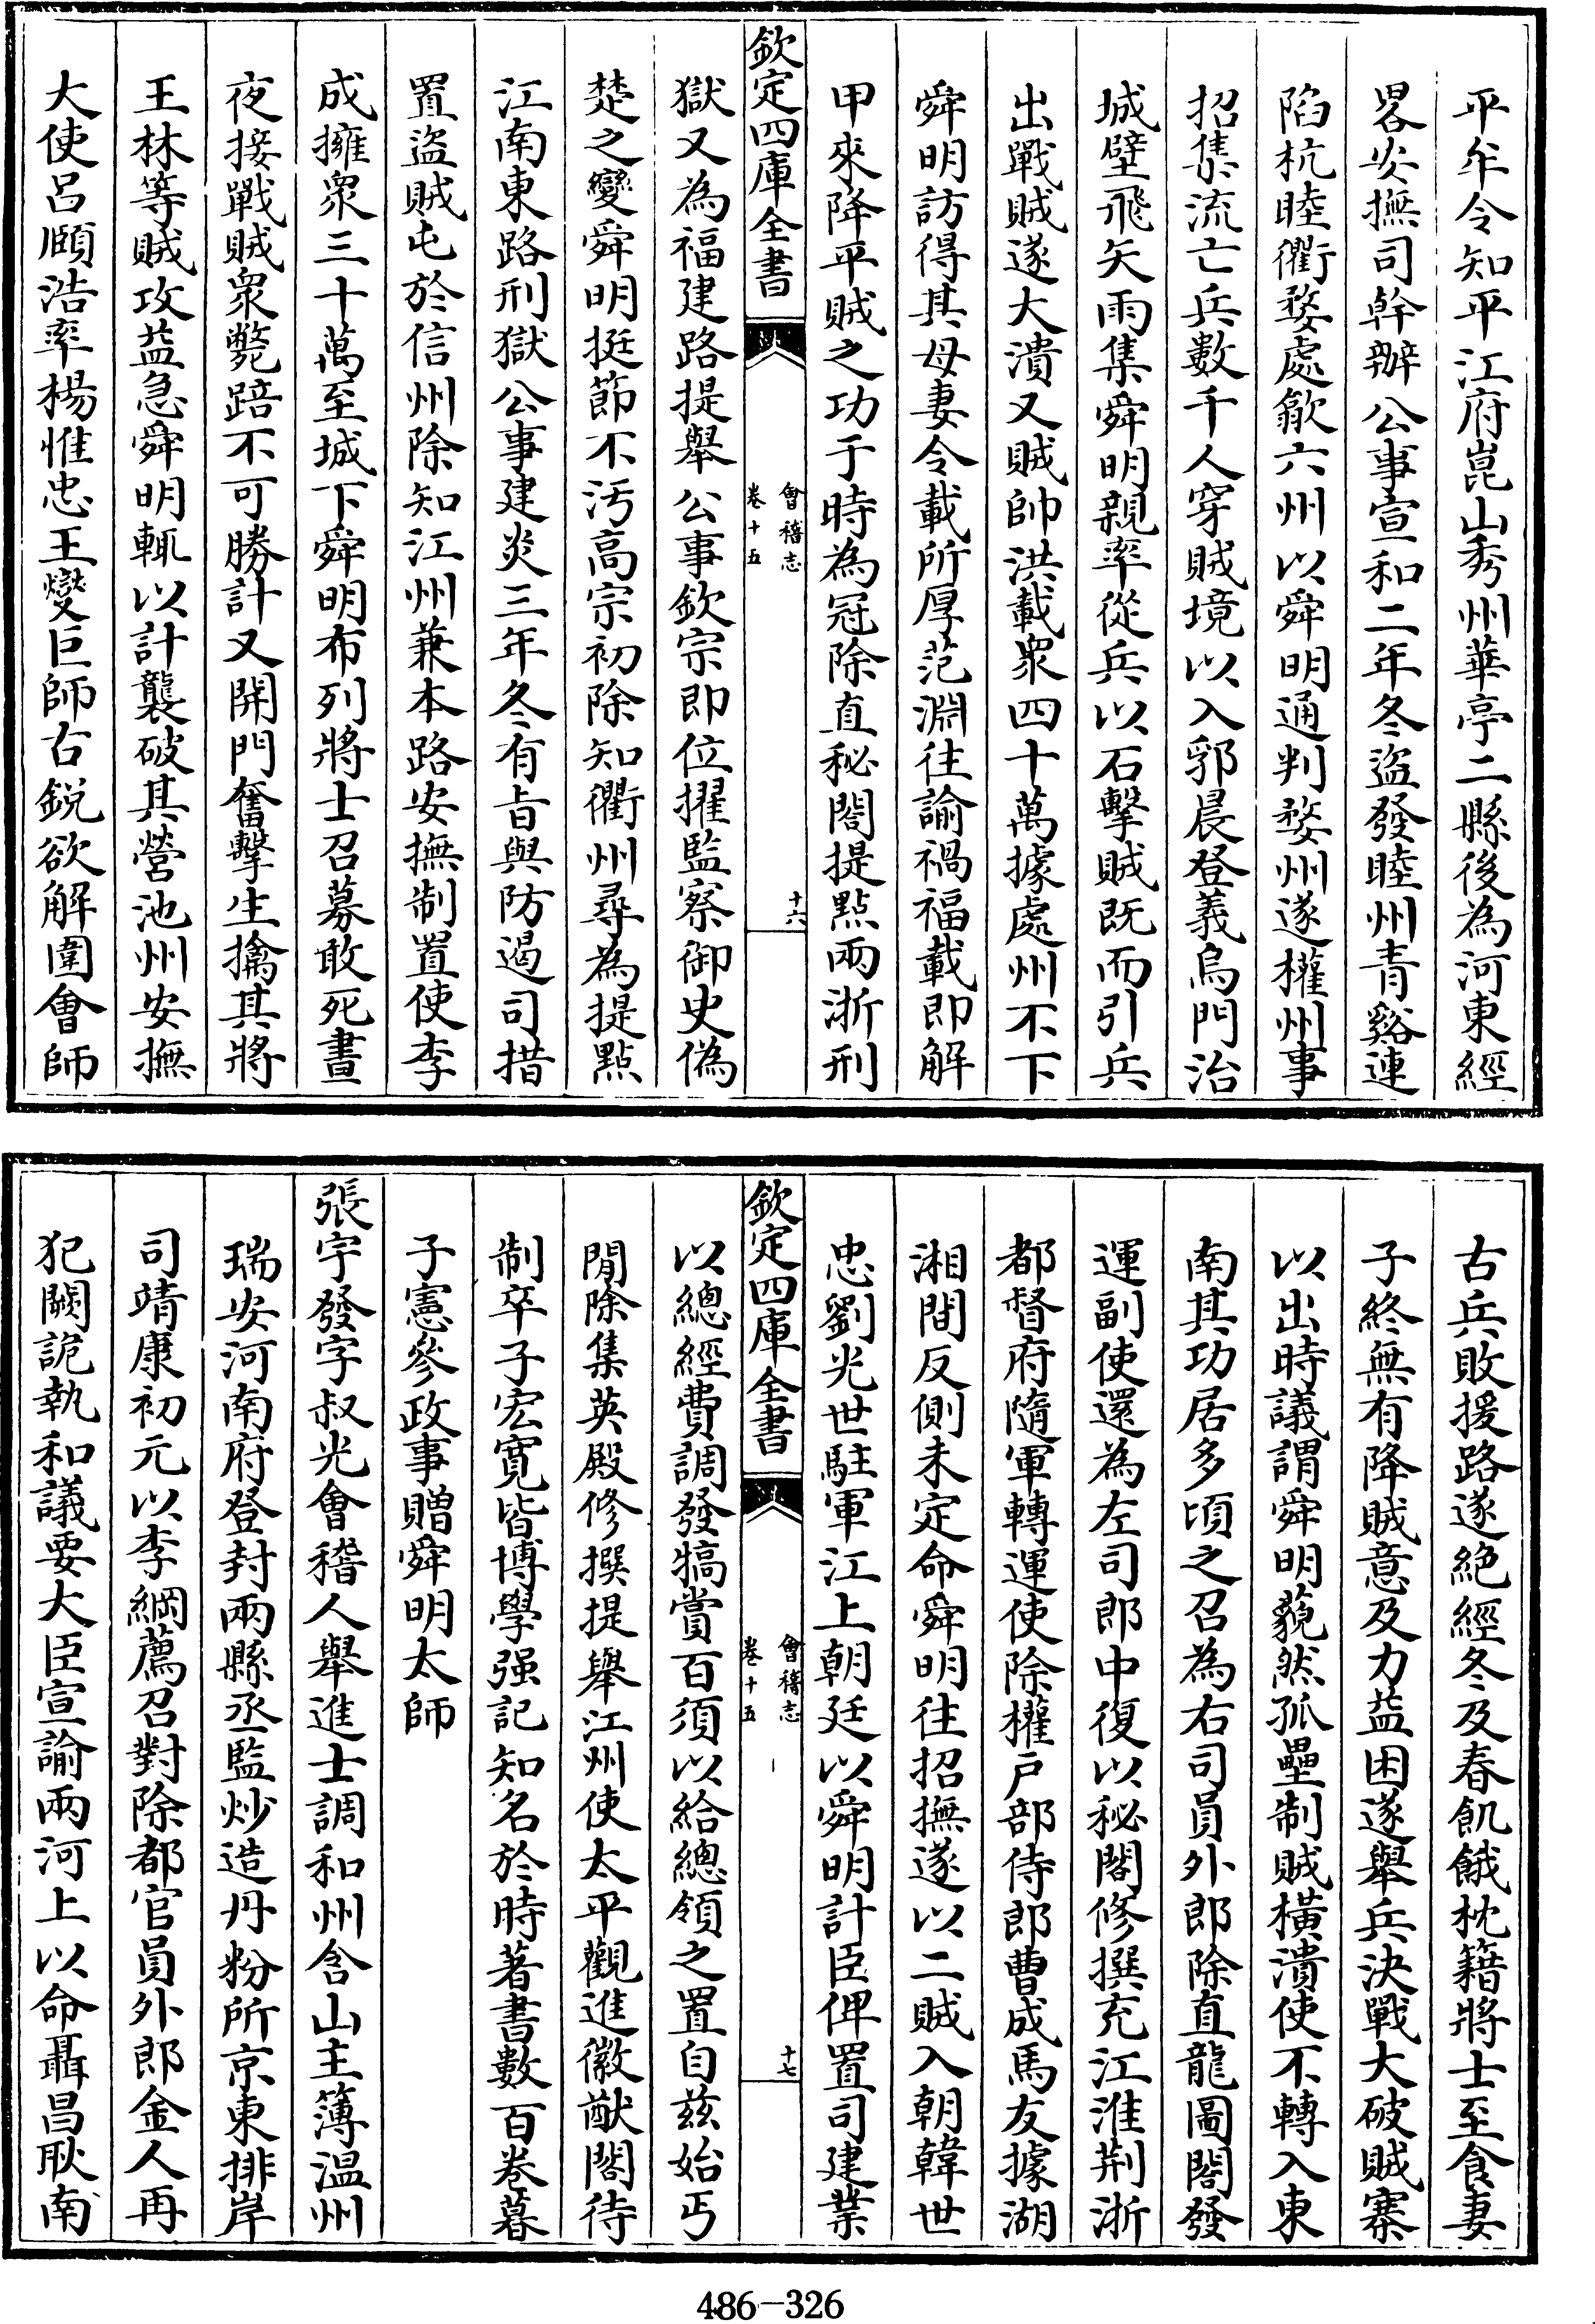 平牟令知平江府崑山秀州華亭二縣後為河東經
畧安撫司幹辦公事宣和二年冬盜發睦州青谿連
陷杭睦衢婺處歙六州以舜明通判婺州遂權州事
招集流亡兵數千人穿賊境以入郛晨登義烏門治
城壁飛矢雨集舜明親率從兵以石擊賊既而引兵
出戰賊遂大潰又賊帥洪載衆四十萬據處州不下
舜明訪得其母妻令載所厚范淵往諭禍福載即解
甲來降平賊之功于時為冠除直秘閣提點兩浙刑
欽定四庫全書
會稽志
卷十五
十六
獄又為福建路提舉公事欽宗即位擢監察御史偽
楚之變舜明挺節不汚高宗初除知衢州尋為提點
江南東路刑獄公事建炎三年冬有旨與防遏司措
置盜賊屯於信州除知江州兼本路安撫制置使李
成擁衆三十萬至城下舜明布列將士召募敢死晝
夜接戰賊衆斃踣不可勝計又開門奮擊生擒其將
王林等賊攻益急舜明輒以計襲破其營池州安撫
大使呂頤浩率楊惟忠王𤫉巨師古銳欲解圍會師
古兵敗援路遂絕經冬及春飢餓枕籍將士至食妻
子終無有降賊意及力益困遂舉兵決戰大破賊寨
以出時議謂舜明藐然孤壘制賊橫潰使不轉入東
南其功居多頃之召為右司員外郎除直龍圖閣發
運副使還為左司郎中復以秘閣修撰充江淮荆浙
都督府隨軍轉運使除權戶部侍郎曹成馬友據湖
湘間反側未定命舜明往招撫遂以二賊入朝韓世
忠劉光世駐軍江上朝廷以舜明計臣俾置司建業
欽定四庫全書
會稽志
卷十五
十七
以總經費調發犒賞百須以給總領之置自兹始丐
閒除集英殿修撰提舉江州使太平觀進徽猷閣待
制卒子宏寬皆博學强記知名於時著書數百卷暮
子憲參政事贈舜明太師
張宇發字叔光會稽人舉進士調和州含山主簿温州
瑞安河南府登封兩縣丞監炒造丹粉所京東排岸
司靖康初元以李綱薦召對除都官員外郎金人再
犯闕詭執和議要大臣宣諭兩河上以命聶昌耿南
486-326